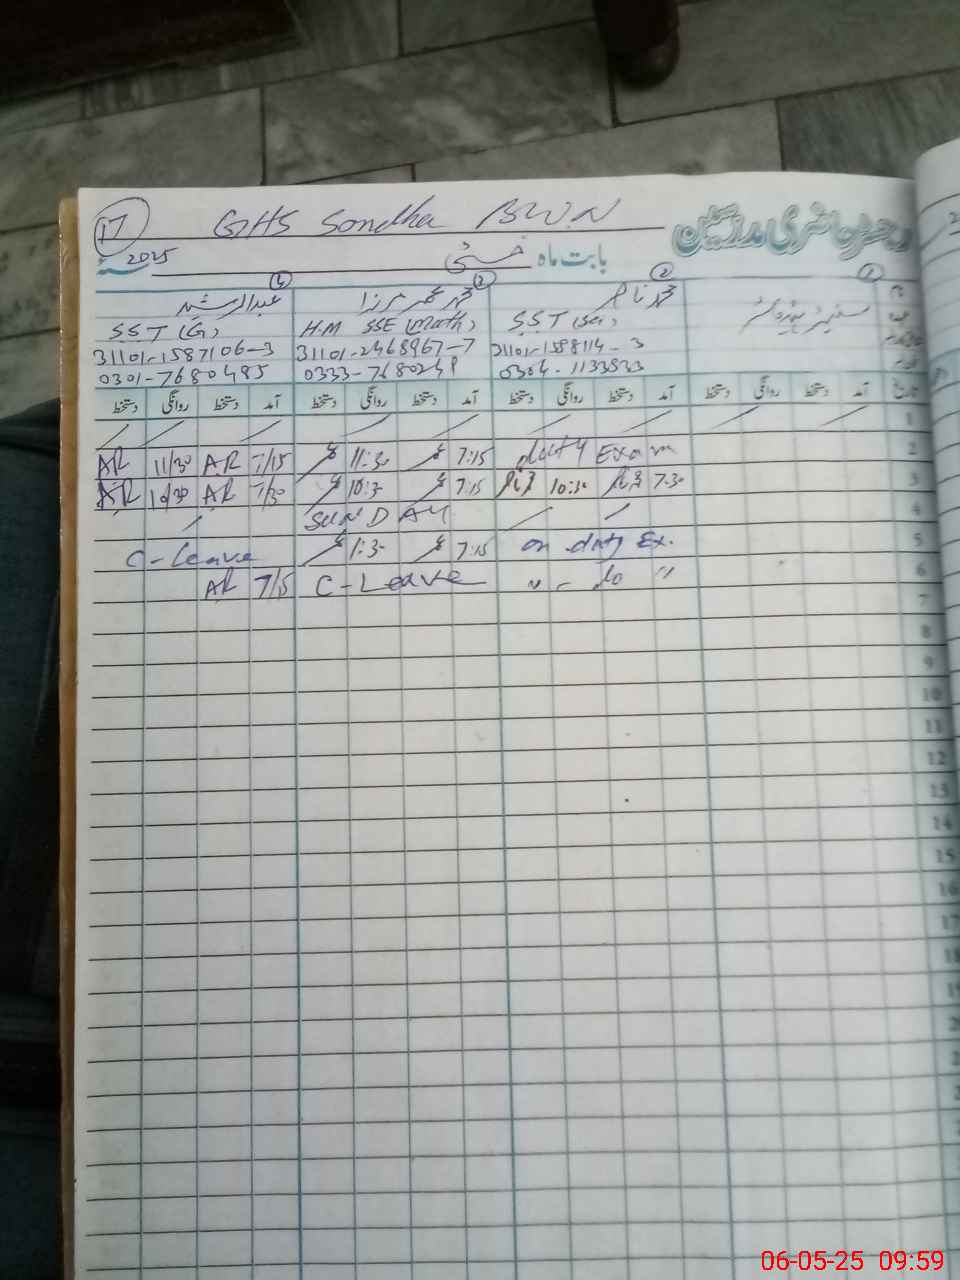 17 GHS Sondha BWN
رجسٹر حاضری مدرسین
بابت ماہ مئی 2025
4 3 2 1
عبدالرشید محمد عمر مرزا محمد ناصر سینئر ہیڈ ماسٹر
SST (G) H.M SSE (Math) SST (Sci)
31101-1587106-3 31101-2468967-7 31101-1588114-3
0301-7680485 0333-7680248 0304-1133533
تاریخ آمد دستخط روانگی دستخط آمد دستخط روانگی دستخط آمد دستخط روانگی دستخط آمد دستخط روانگی دستخط
1
AR 11/30 AR 7/15 11:30 7:15 duty Exam 2
AR 10/30 AR 7/30 10:30 7:15 10:30 7:30 3
SUNDAY 4
C-Leave 1:30 7:15 on duty Ex. 5
AR 7/15 C-Leave " - do " 6
7
8
9
10
11
12
13
14
15
16
17
18
06-05-25 09:59